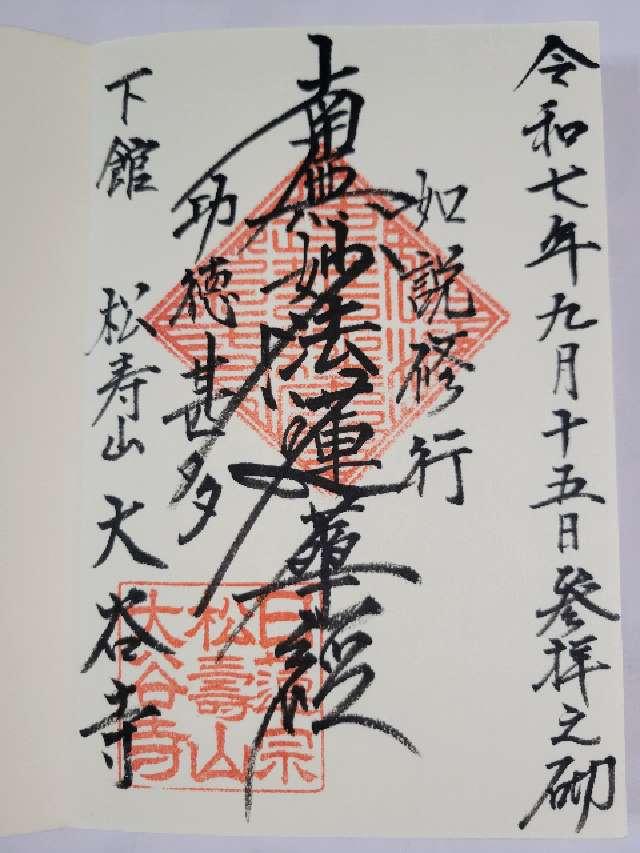 令和七年九月十五日参拝之砌
如説修行
南無妙法蓮華経
功徳甚多
下館 松寿山 大谷寺
日蓮宗
松壽山
大谷寺